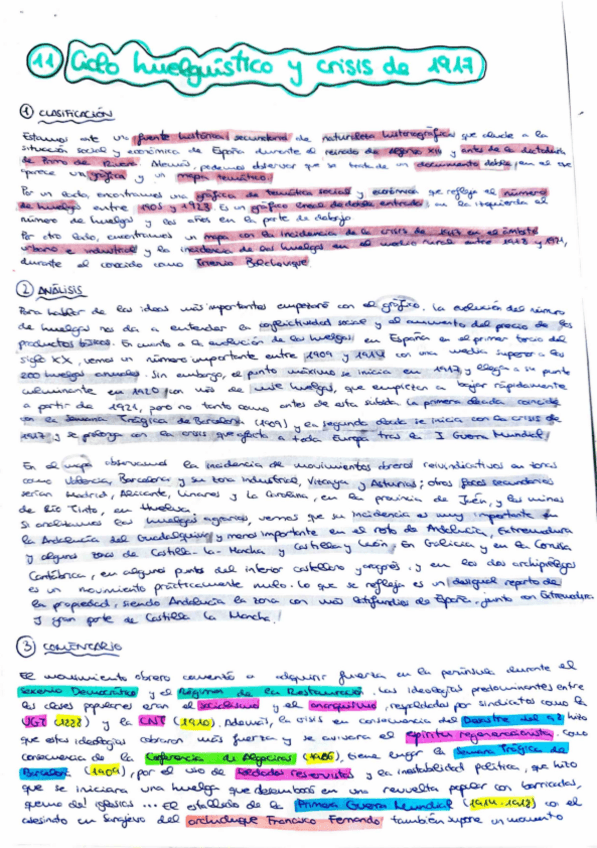 11 Ciclo huelguístico y crisis de 1917
1 CLASIFICACIÓN
Estamos ante una fuente histórica secundaria de naturaleza historiográfica que alude a la
situación social y económica de España durante el reinado de Alfonso XIII y antes de la dictadura
de Primo de Rivera. Además, podemos observar que se trata de un documento doble, en el que
aparece una gráfica y un mapa temático.
Por un lado, encontramos una gráfica de temática social y económica que refleja el número
de huelgas entre 1905 y 1923. Es un gráfico lineal de doble entrada: en la izquierda el
número de huelgas y los años en la parte de debajo.
Por otro lado, encontramos un mapa con la incidencia de la crisis de 1917 en el ámbito
urbano e industrial y la incidencia de las huelgas en el medio rural entre 1918 y 1921,
durante el conocido como Trienio Bolchevique.
2 ANÁLISIS
Para hablar de las ideas más importantes empezaré con el gráfico. La evolución del número
de huelgas nos da a entender la conflictividad social y el aumento del precio de los
productos básicos. En cuanto a la evolución de las huelgas en España en el primer tercio del
siglo XX, vemos un número importante entre 1909 y 1914 con una media superior a las
200 huelgas anuales. Sin embargo, el punto máximo se inicia en 1917 y llega a su punto
culminante en 1920 con más de mil huelgas, que empiezan a bajar rápidamente
a partir de 1921, pero no tanto como antes de esta subida. La primera década coincide
con la Semana Trágica de Barcelona (1909) y la segunda década se inicia con la crisis de
1917 y se prolonga con la crisis que afecta a toda Europa tras la I Guerra Mundial.
En el mapa observamos la incidencia de movimientos obreros reivindicativos en zonas
como Valencia, Barcelona y su zona industrial, Vizcaya y Asturias; otros focos secundarios
serían Madrid, Alicante, Linares y La Carolina, en la provincia de Jaén, y las minas
de Río Tinto, en Huelva.
Si analizamos las huelgas agrarias, vemos que su incidencia es muy importante en
la Andalucía del Guadalquivir y menos importante en el resto de Andalucía, Extremadura
y alguna zona de Castilla-La-Mancha y Castilla y León. En Galicia y en la Cornisa
Cantábrica, en algunos puntos del interior castellano y aragonés, y en los dos archipiélagos
es un movimiento prácticamente nulo. Lo que se refleja es un desigual reparto de
la propiedad, siendo Andalucía la zona con más latifundios de España, junto con Extremadura
y gran parte de Castilla La Mancha.
3 COMENTARIO
El movimiento obrero comenzó a adquirir fuerza en la península durante el
Sexenio Democrático y el Régimen de la Restauración. Las ideologías predominantes entre
las clases populares eran el socialismo y el anarquismo, respaldados por sindicatos como la
UGT (1888) y la CNT (1910). Además, la crisis en consecuencia del Desastre del 98 hizo
que estas ideologías cobraran más fuerza y se avivara el espíritu regeneracionista. Como
consecuencia de la Conferencia de Algeciras (1906) tiene lugar la Semana Trágica de
Barcelona (1909), por el uso de soldados reservistas y la inestabilidad política, que hizo
que se iniciara una huelga que desembocó en una revuelta popular con barricadas,
quema de iglesias... El estallido de la Primera Guerra Mundial (1914-1918) con el
asesinato en Sarajevo del archiduque Francisco Fernando también supone un momento